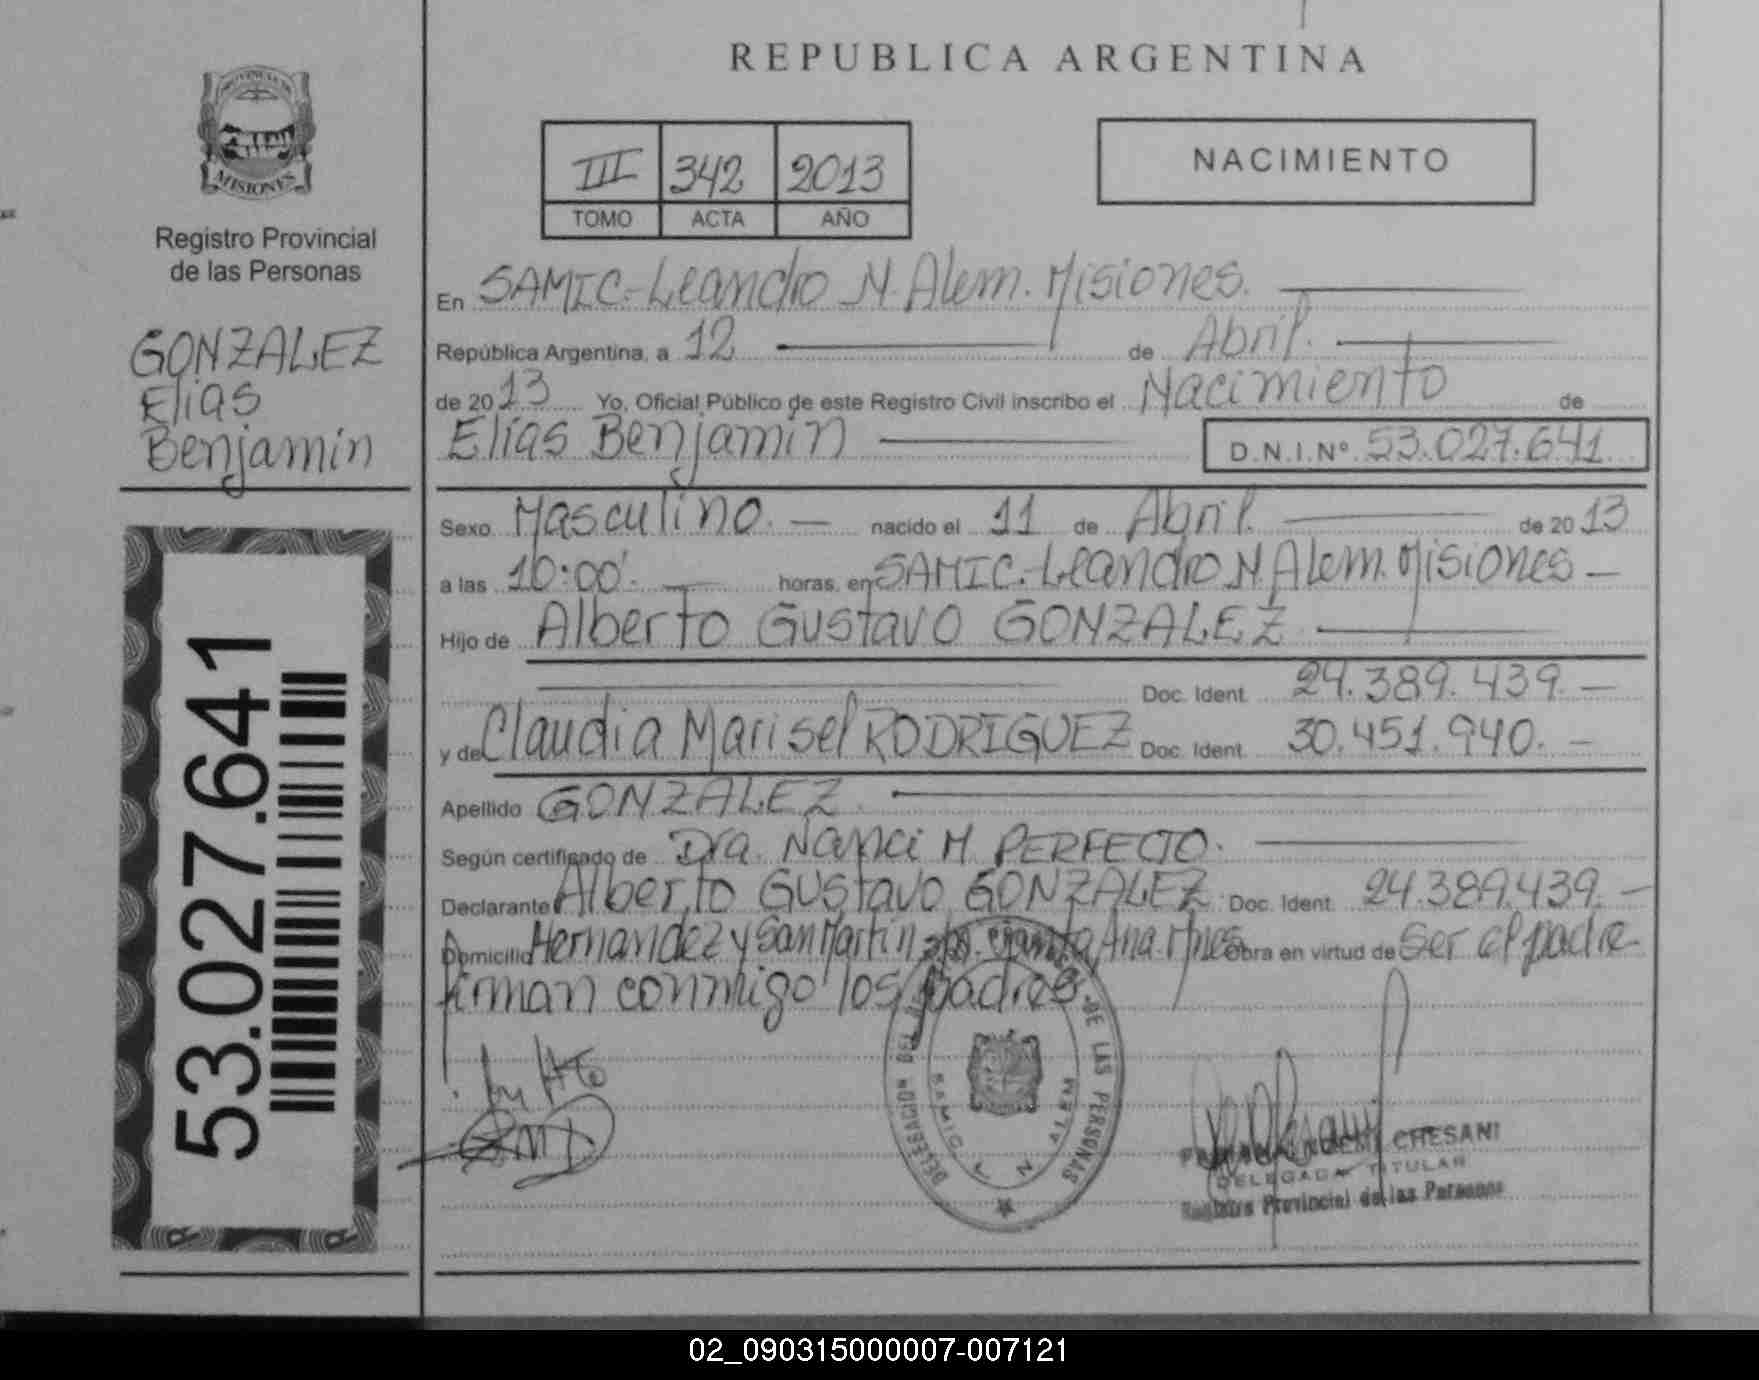 REPUBLICA ARGENTINA
PROVINCIA DE
MISIONES
Registro Provincial
de las Personas
GONZALEZ
Elias
Benjamin
53.027.641
III 342 2013
TOMO ACTA AÑO
NACIMIENTO
En SAMIC-Leandro N. Alem. Misiones.
República Argentina, a 12 de Abril.
de 2013 Yo, Oficial Público de este Registro Civil inscribo el Nacimiento de
Elías Benjamin D.N.I.Nº 53.027.641
Sexo Masculino. nacido el 11 de Abril. de 2013
a las 10:00'. horas, en SAMIC.-Leandro N. Alem. Misiones
Hijo de Alberto Gustavo GONZALEZ
Doc. Ident. 24.389.439.
y de Claudia Marisel RODRIGUEZ Doc. Ident. 30.451.940.
Apellido GONZALEZ
Según certificado de Dra. Nanci M. PERFECTO.
Declarante Alberto Gustavo GONZALEZ Doc. Ident. 24.389.439.
Domicilio Hernandez y San Martin Santa Ana. Mnes obra en virtud de ser el padre
firman conmigo los padres
DELEGACION DE LAS PERSONAS
SAMIC L N ALEM
CHESANI
DELEGADA TITULAR
Registro Provincial de las Personas
02_090315000007-007121